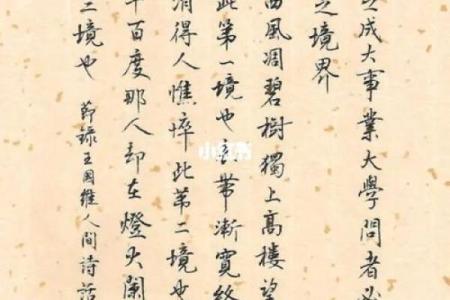 之成大事業大學問者必
之境界
西風凋碧樹獨上高樓望
此第一境也衣帶漸寬終
消得人憔悴此第二境也
千百度那人却在燈火闌
三境也
節錄王國維人間詩話
小红书